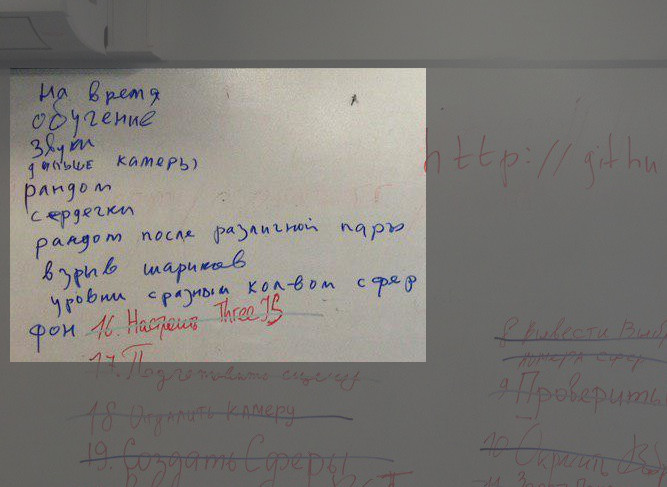 на время
обучение
звуки
дальше камеры
рандом
сердечки
рандом после различной пары
взрыв шариков
уровни с разным кол-вом сфер
фон 16. Настроить ThreeJS
17. Подготовить сцену
18 Отдалить камеру
19. Создать Сферы
http://githu
8 Вывести
номера сфер
9 Проверить
10